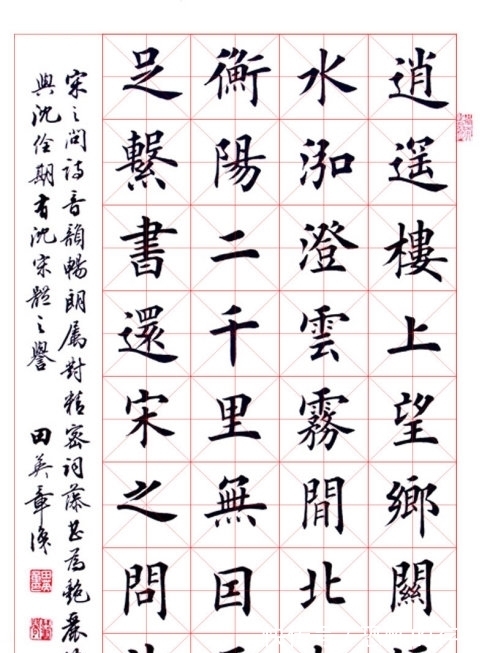 逍遥樓上望鄉關
水泓澄雲霧閒北
衡陽二千里無囙
足繫書還宋之問
宋之問詩音韻暢朗屬對精密詞藻甚為艷麗
與沈佺期有沈宋體之譽 田英章